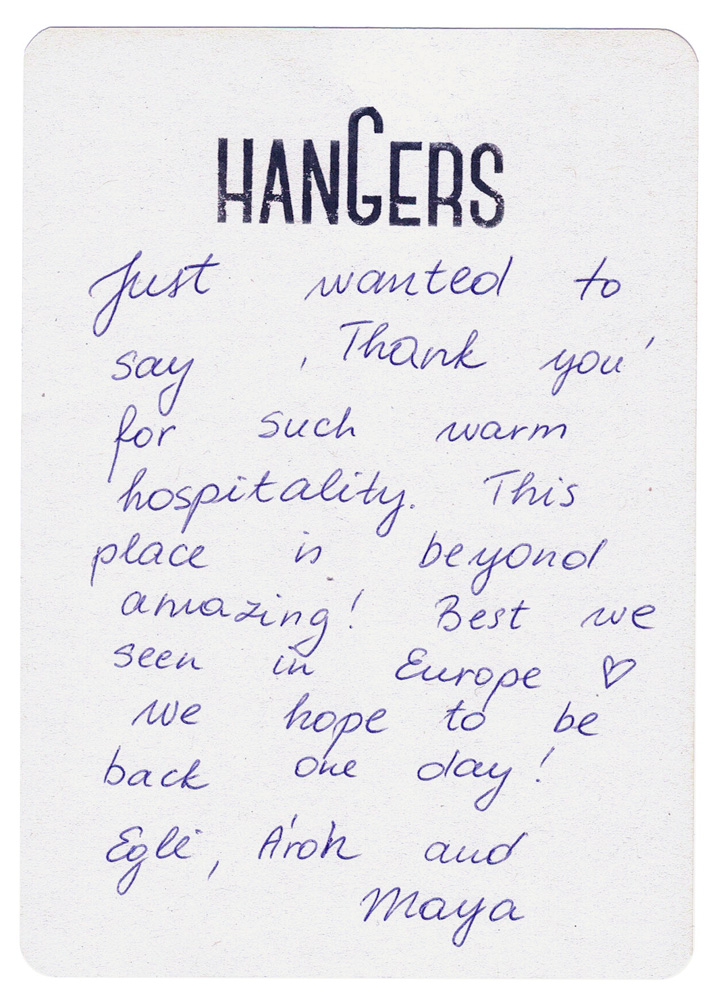 HANGERS
Just wanted to
say , Thank you'
for such warm
hospitality. This
place is beyond
amazing! Best we
seen in Europe ♡
we hope to be
back one day!
Egle, and
Maya